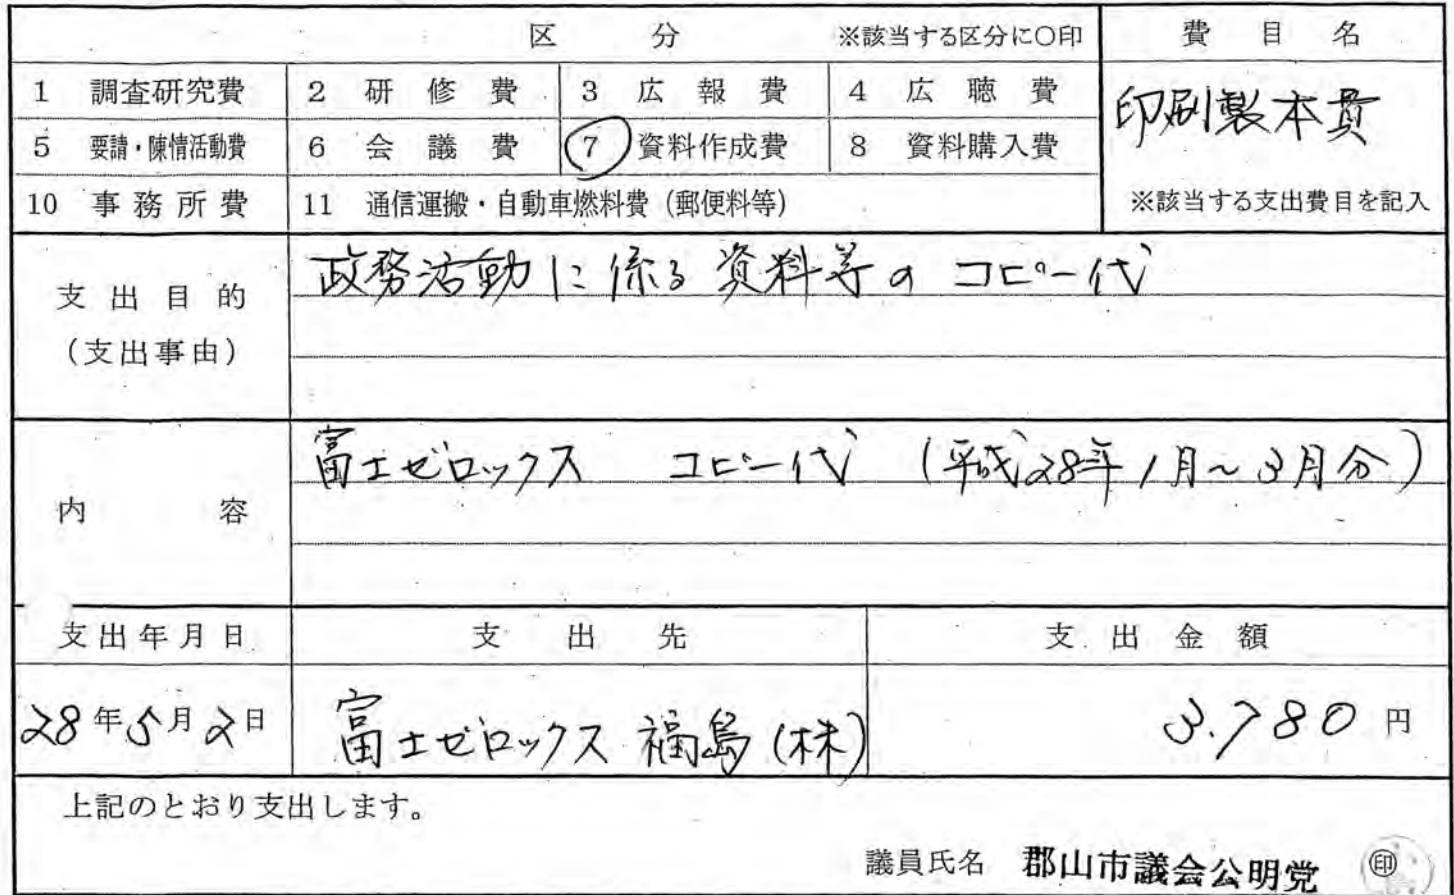 区 分 ※該当する区分に〇印 費目名
1 調査研究費 2 研修費 3 広報費 4 広聴費
印刷製本費
5 要請・陳情活動費 6 会議費 7 資料作成費 8 資料購入費
10 事務所費 11 通信運搬・自動車燃料費(郵便料等) ※該当する支出費目を記入
支出目的
(支出事由)
政務活動に係る資料等のコピー代
内容
富士ゼロックス コピー代 (平成28年1月～3月分)
支出年月日 支出先 支出金額
28年5月2日 富士ゼロックス福島(株) 3.780円
上記のとおり支出します。
議員氏名 郡山市議会公明党 ㊞